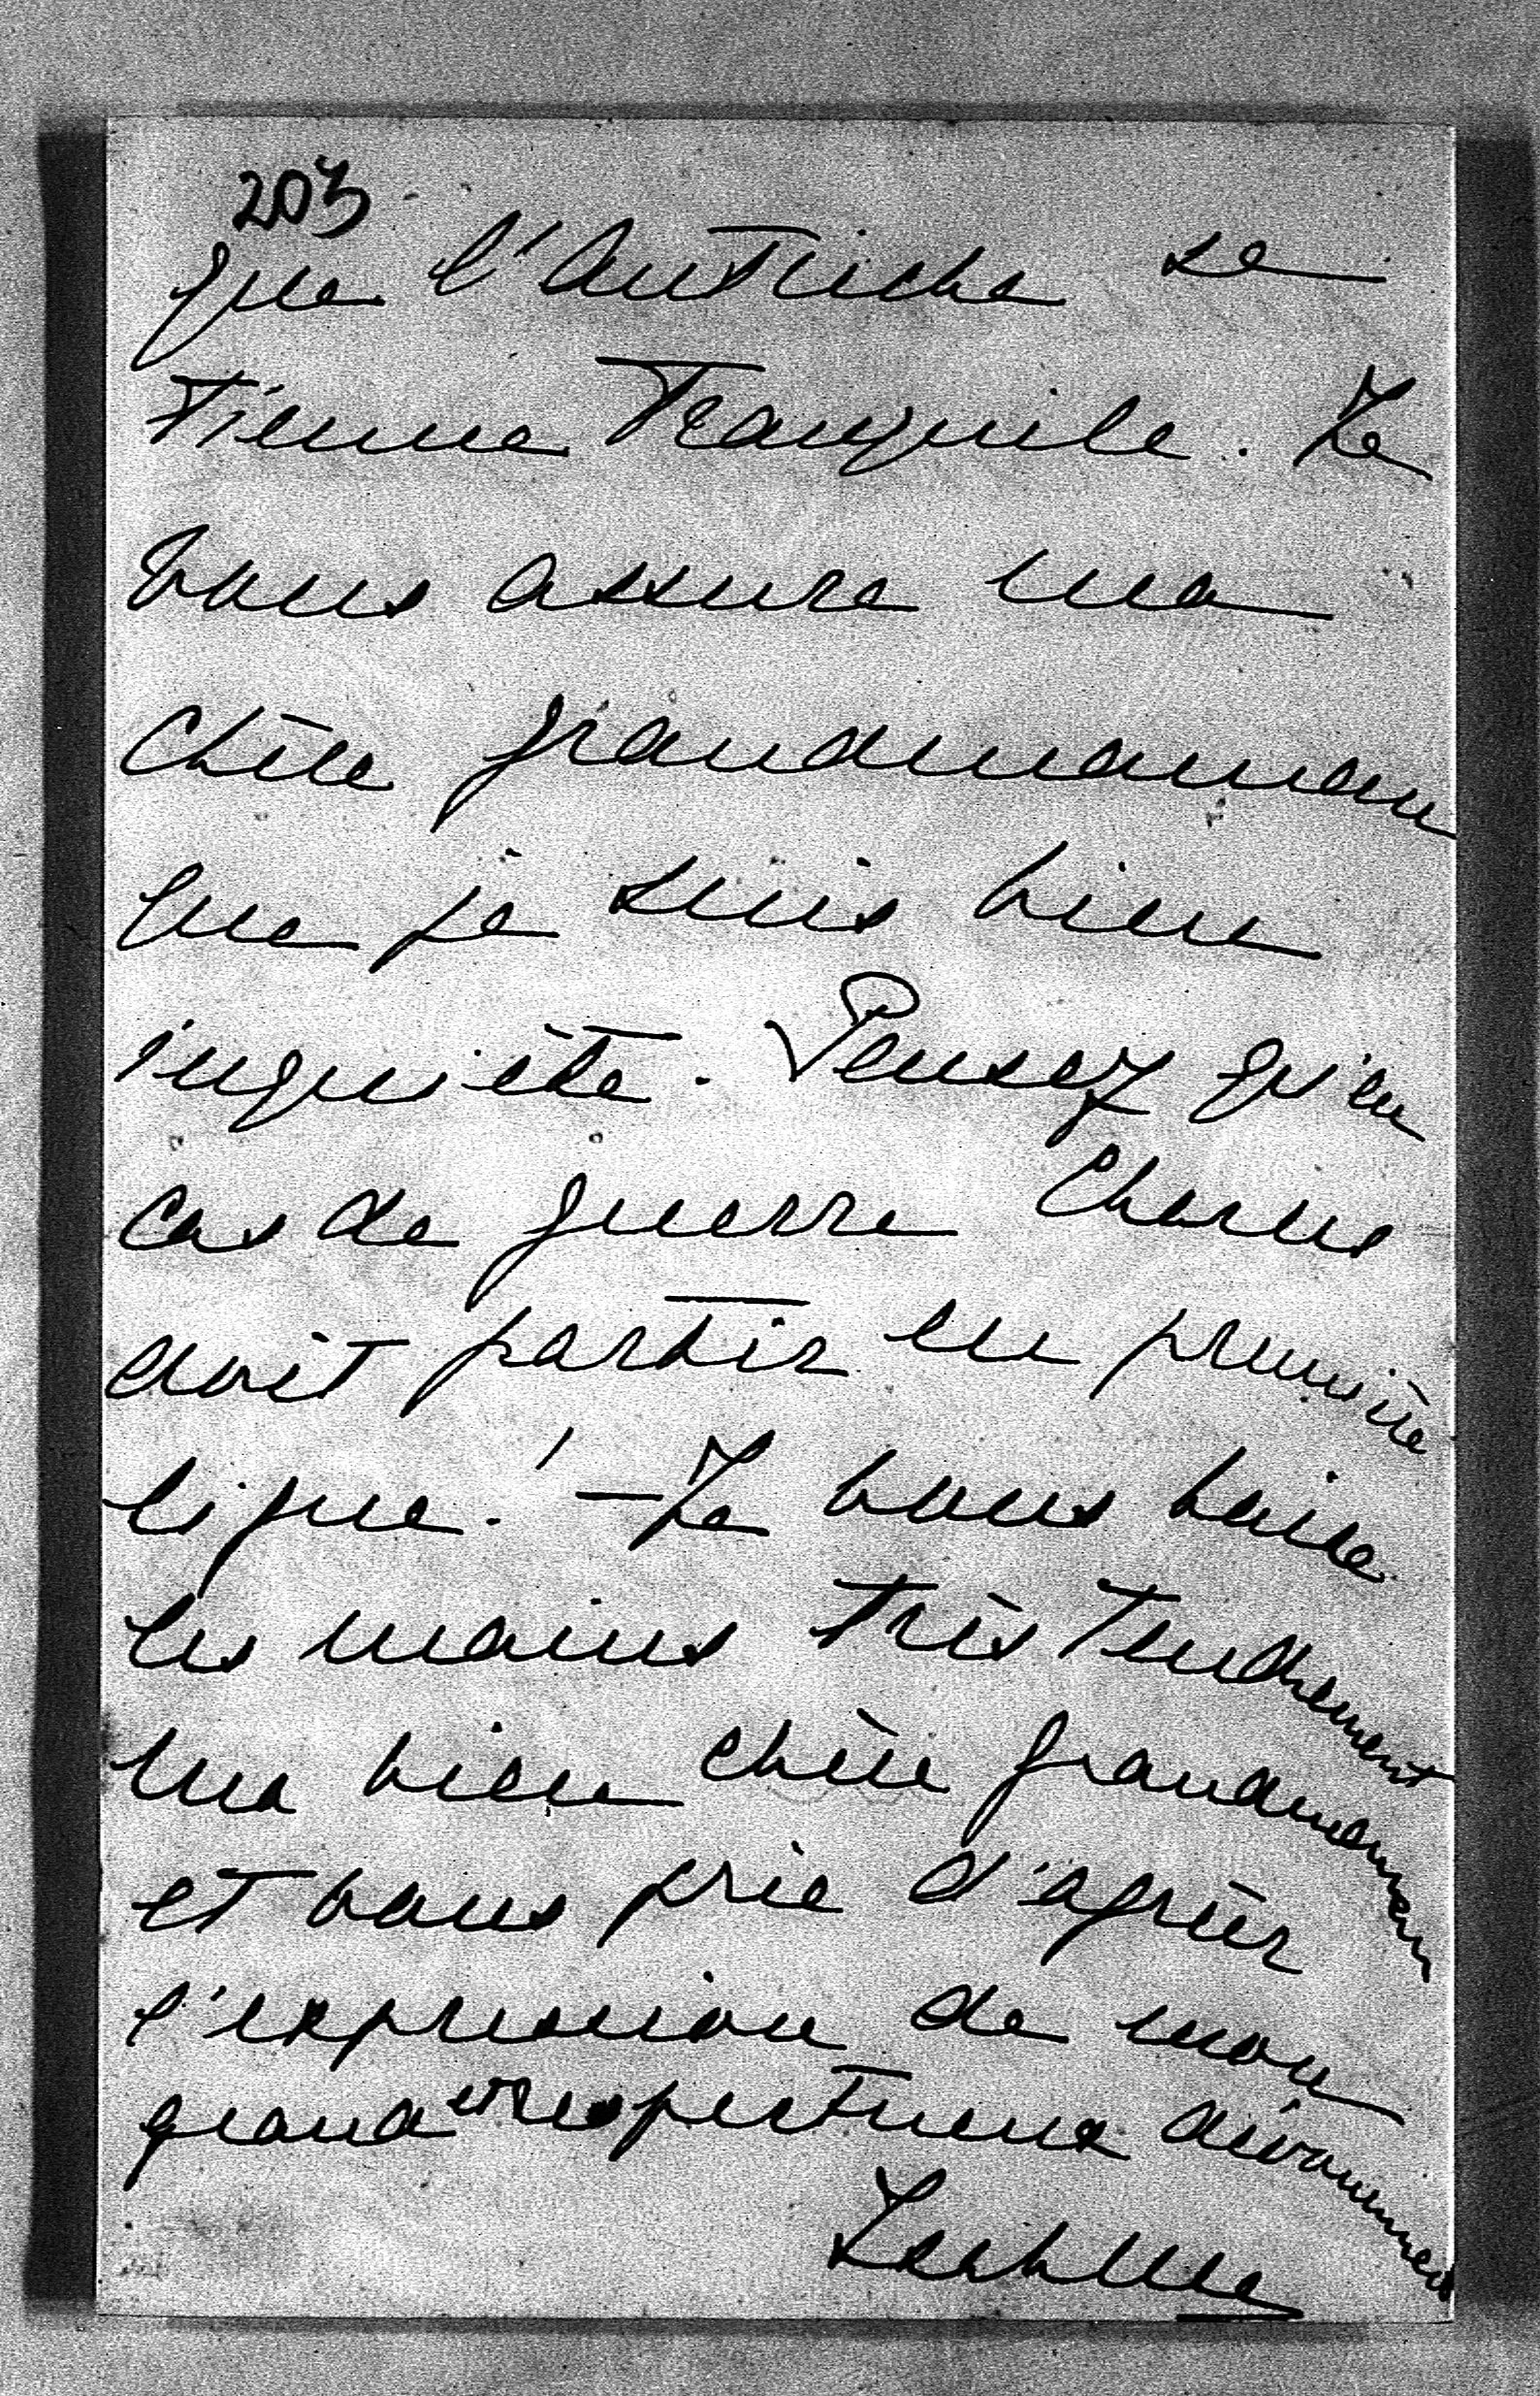 203
que l'Autriche se
tienne tranquile. Je
vous assure ma
chère grandmaman
que je suis bien
inquiète. Pensez qu'en
cas de guerre Charles
doit partir en première
ligne! – Je vous baise
les mains très tendrement
ma bien chère grandmaman
et vous prie d'agréer
l'expression de mon
grand et respectueux dévouement